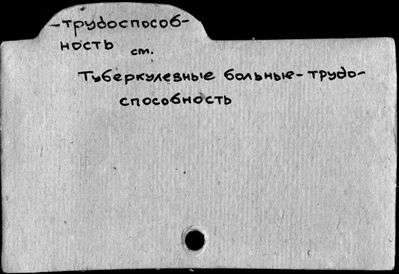 -трудоспособ-
ность см.
Туберкулезные больные-трудо-
способность